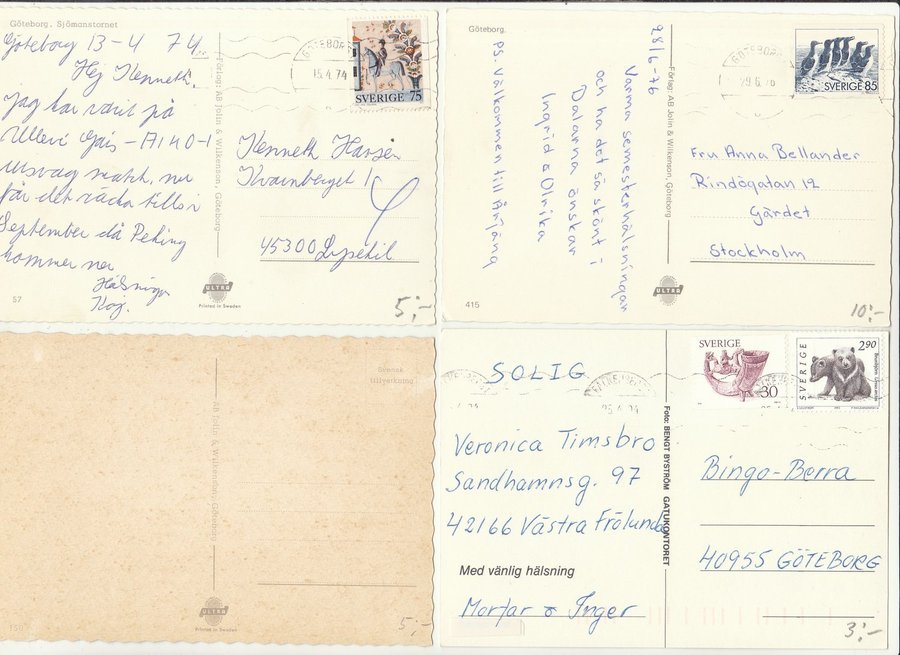 Göteborg, Sjömanstornet
Göteborg 13-4 74
Hej Kenneth.
Jag har varit på
Ullevi Gais - 0-1
match, nu
får det räcka tills i
September då Peking
kommer ner
Hälsningar
57
Förlag: AB Jolin & Wilkenson, Göteborg
ULTRA
Printed in Sweden
GÖTEBORG
15.4.74
SVERIGE 75
Kenneth
Kvarnberget 1
45300 Lysekil
5:-
Göteborg.
28/6-76
Varma semesterhälsningar
och ha det så skönt i
Dalarna önskar
Ingrid & Ulrika
PS. Välkommen till Årjäng
415
Förlag: AB Jolin & Wilkenson, Göteborg
ULTRA
GÖTEBORG
29.6.76
SVERIGE 85
Fru Anna Bellander
Rindögatan 12
Gärdet
Stockholm
10:-
AB Jolin & Wilkenson, Göteborg
Svensk
tillverkning
ULTRA
Printed in Sweden
5:-
SOLIG
Veronica Timsbro
Sandhamnsg. 97
42166 Västra Frölunda
Med vänlig hälsning
& Inger
Foto: BENGT BYSTRÖM GATUKONTORET
SVERIGE
30
SVERIGE
2.90
Bingo-Berra
40955 GÖTEBORG
3:-